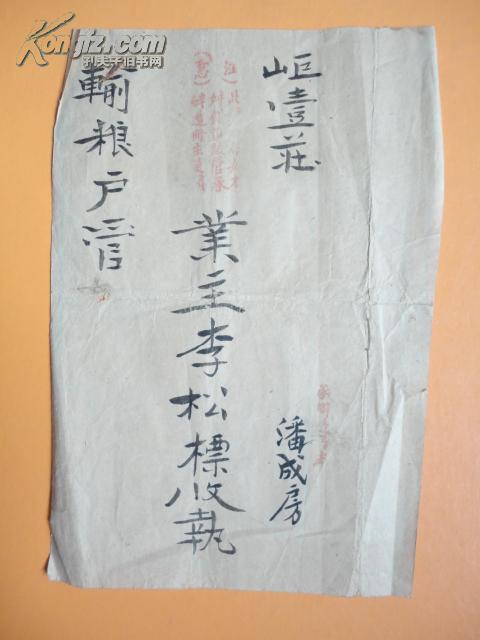 岠壹莊
潘成房
業主李松標收執
輸粮户管
Kongfz.com
孔夫子旧书网